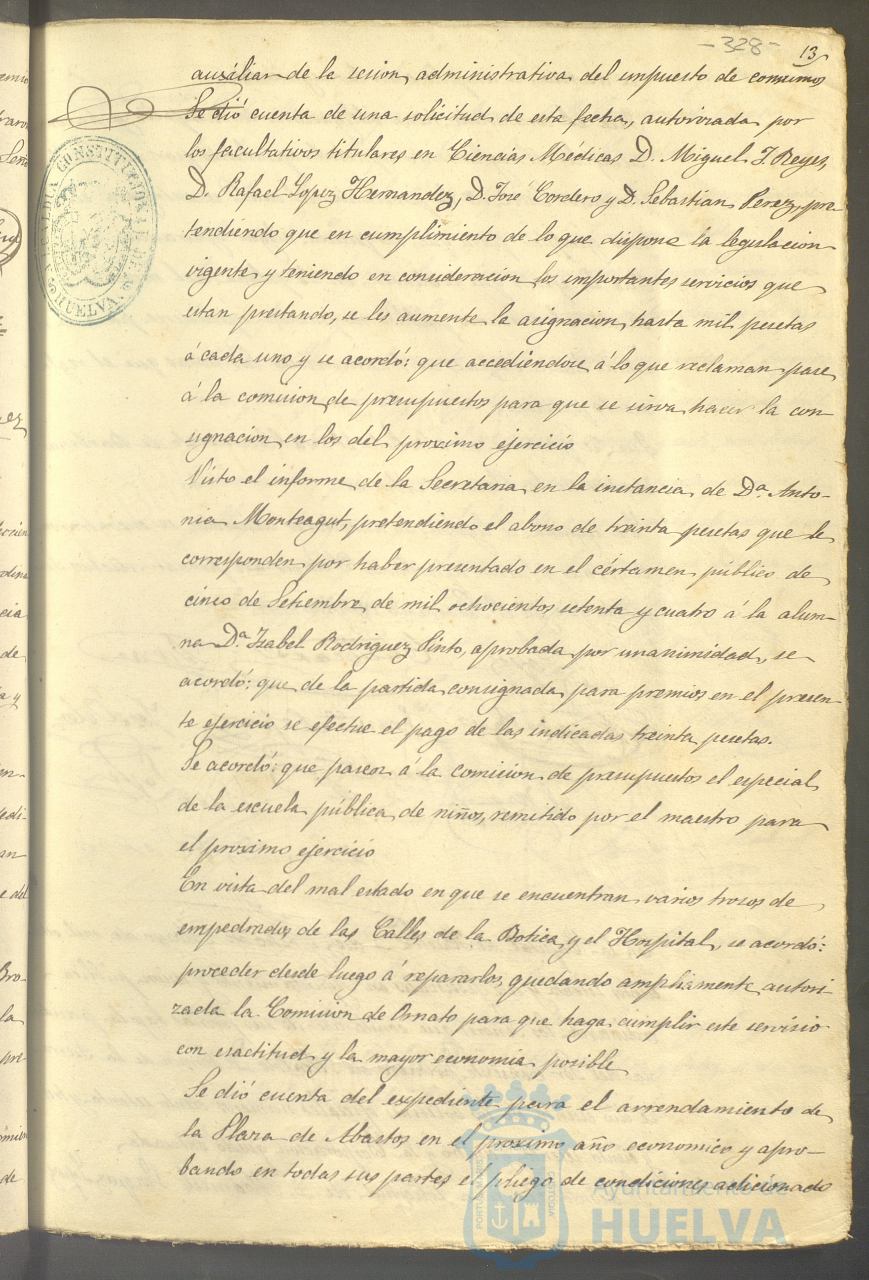 -328-
13
auxiliar de la sesion administrativa del impuesto de consumos
Se dió cuenta de una solicitud de esta fecha, autorizada por
los facultativos titulares en Ciencias Médicas D. Miguel F. Reyes,
D. Rafael Lopez Hernandez, D. José Cordero y D. Sebastian Perez, pre-
tendiendo que en cumplimiento de lo que dispone la legislacion
vigente y teniendo en consideracion los importantes servicios que
estan prestando, se les aumente la asignacion hasta mil pesetas
á cada uno y se acordó: que accediendose á lo que reclaman pase
á la comision de presupuestos para que se sirva hacer la con
signacion en los del proximo ejercicio
Visto el informe de la Secretaria en la instancia de Dª Anto-
nia Monteagut, pretendiendo el abono de treinta pesetas que le
corresponden por haber presentado en el cértamen público de
cinco de Setiembre de mil ochocientos setenta y cuatro á la alum-
na Dª Izabel Rodriguez Pinto, aprobada por unanimidad, se
acordó: que de la partida consignada para premios en el presen-
te ejercicio se efectue el pago de las indicadas treinta pesetas.
Se acordó: que pasea á la comision de presupuestos el especial
de la escuela pública de niños, remitido por el maestro para
el proximo ejercicio
En vista del mal estado en que se encuentran varios trosos de
empedrados de las Calles de la Botica y el Hospital, se acordó:
proceder desde luego á repararlos, quedando ampliamente autori
zada la Comision de Ornato para que haga cumplir este servisio
con esactitud y la mayor economia posible
Se dió cuenta del espediente para el arrendamiento de
la Plaza de Abastos en el proximo año economico y apro-
bando en todas sus partes el pliego de condiciones adicionado
ALCALDIA CONSTITUCIONAL DE HUELVA
Ayuntamiento de
HUELVA